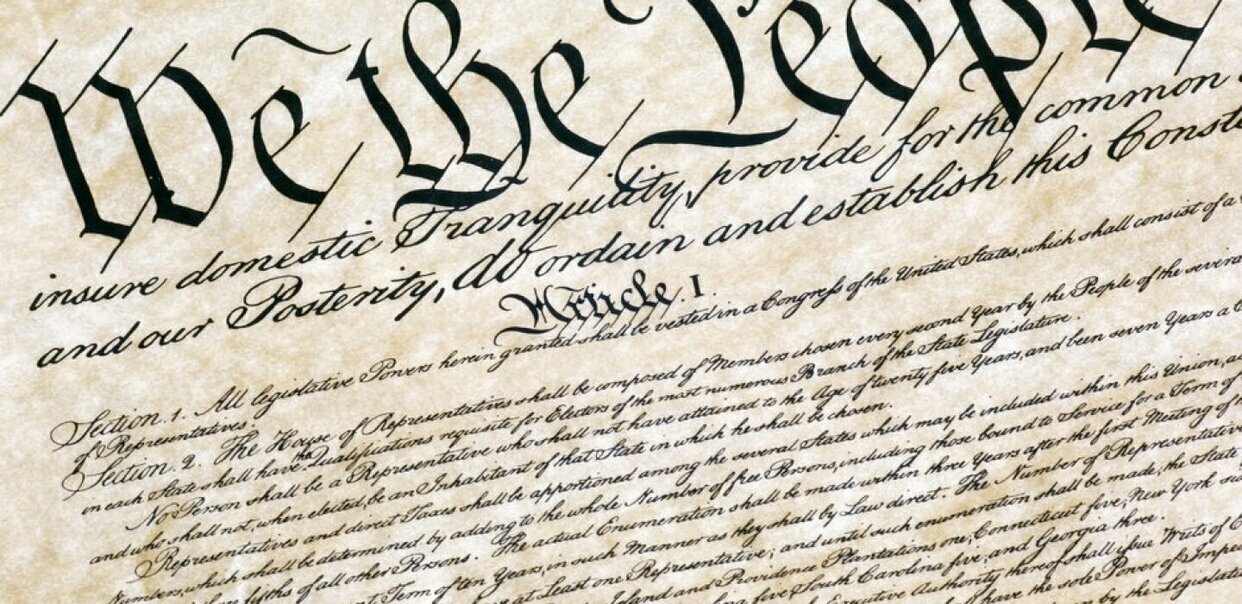 We the People
insure domestic Tranquility, provide for the common
and our Posterity, do ordain and establish this Const
Article. I.
Section. 1. All legislative Powers herein granted shall be vested in a Congress of the United States, which shall consist of a
of Representatives.
Section. 2. The House of Representatives shall be composed of Members chosen every second Year by the People of the several
in each State shall have the Qualifications requisite for Electors of the most numerous Branch of the State Legislature.
No Person shall be a Representative who shall not have attained to the Age of twenty five Years, and been seven Years a
and who shall not, when elected, be an Inhabitant of that State in which he shall be chosen.
Representatives and direct Taxes shall be apportioned among the several States which may be included within this Union,
Numbers, which shall be determined by adding to the whole Number of free Persons, including those bound to Service for a Term of
fifths of all other Persons. The actual Enumeration shall be made within three Years after the first Meeting of
Term of ten Years, in such Manner as they shall by Law direct. The Number of Representatives
at Least one Representative; and until such enumeration shall be made, the State
Island and Providence Plantations one, Connecticut five, New York
five, South Carolina five, and Georgia three.
Executive Authority thereof shall issue Writs of
have the sole Power of
by the